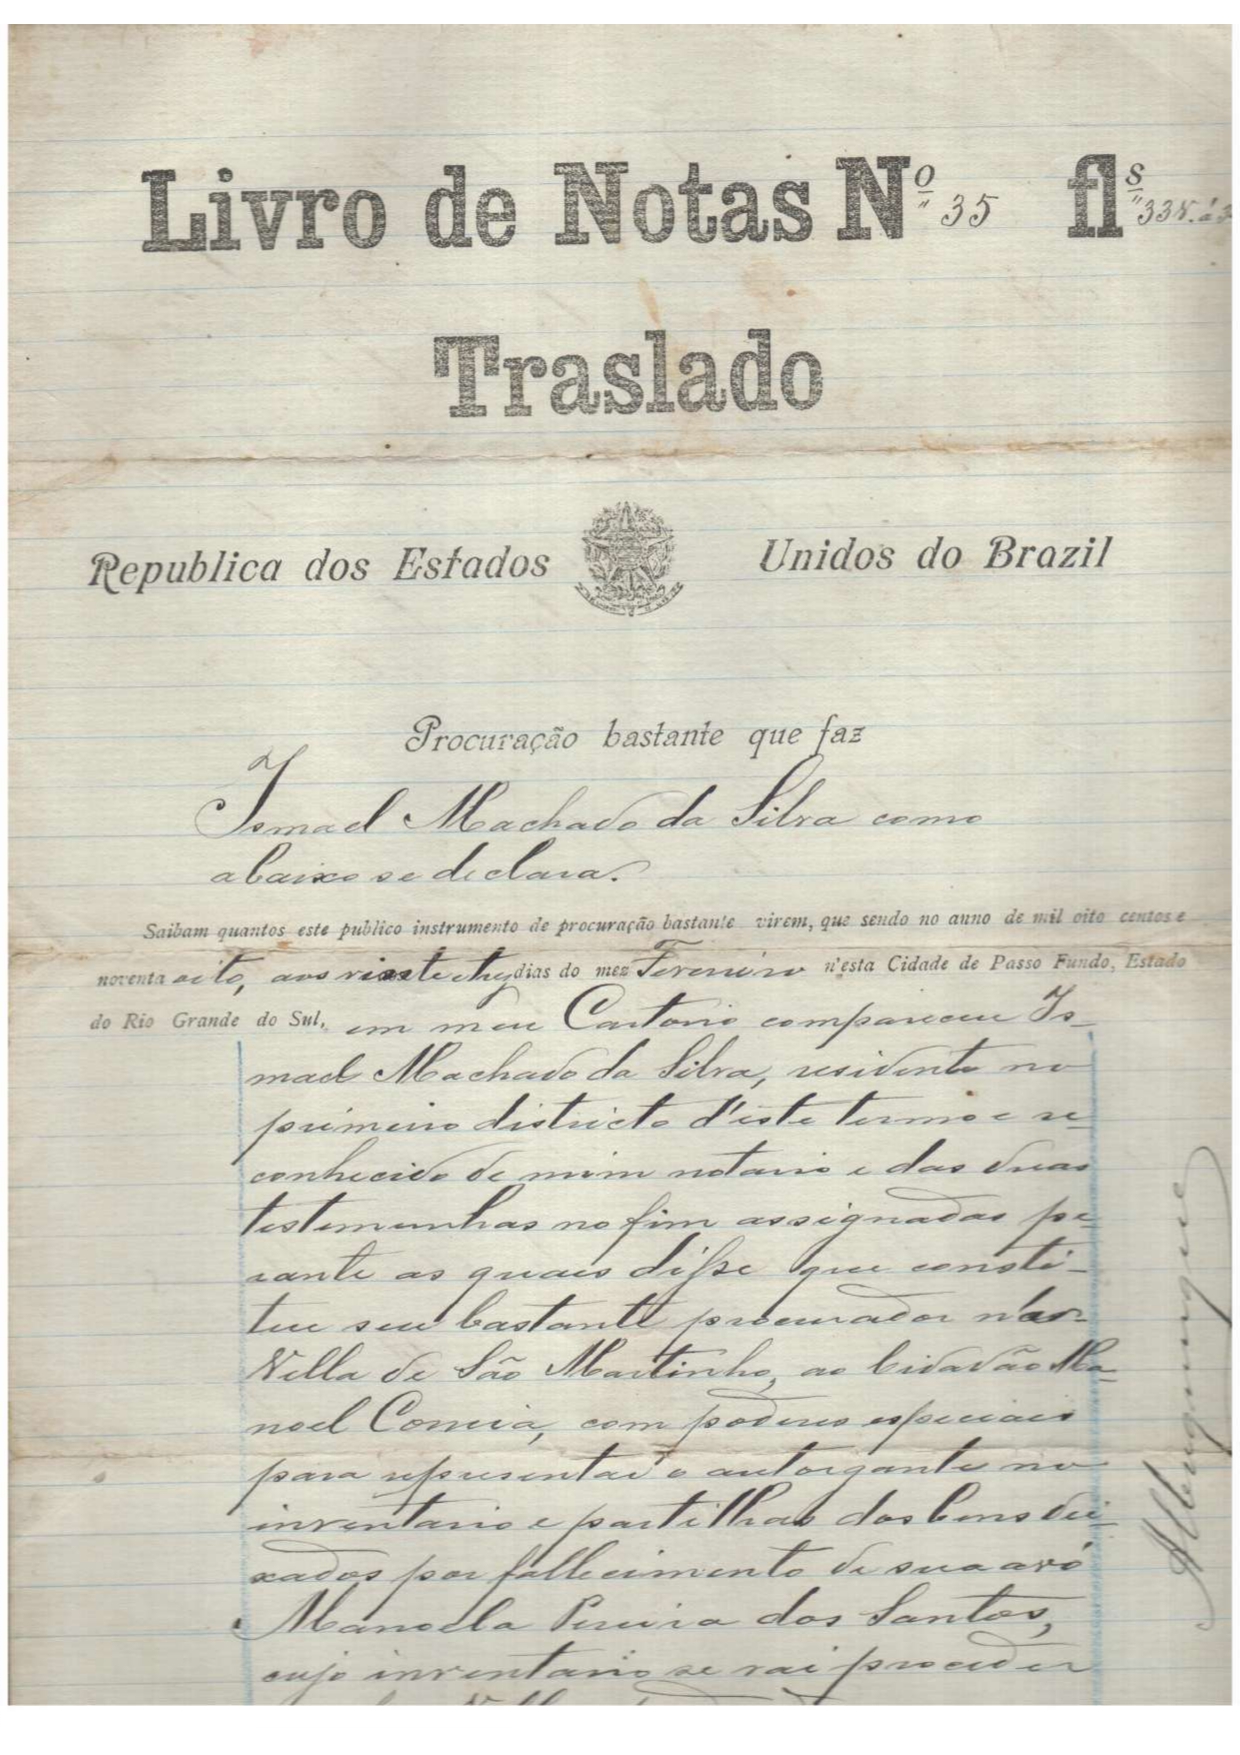 Livro de Notas Nº 35 fls
Traslado
Republica dos Estados Unidos do Brazil
Procuração bastante que faz
Ismael Machado da Silva como
abaixo se declara.
Saibam quantos este publico instrumento de procuração bastante virem, que sendo no anno de mil oito centos e
noventa oito, aos vinte tres dias do mez Fevereiro n'esta Cidade de Passo Fundo, Estado
do Rio Grande do Sul, em meu Cartorio compareceu Is-
mael Machado da Silva, residente no
primeiro districto d'este termo e re-
conhecido de mim notario e das duas
testemunhas no fim assignadas pe-
rante as quaes disse que consti-
tue seu bastante procurador
Villa de São Martinho, ao Cidadão Ma-
noel Correia, com poderes especiais
para representar o outorgante no
inventario e partilhas dos bens dei-
xados por fallecimento de sua avó
Manoela Pereira dos Santos,
cujo inventario se vai proceder